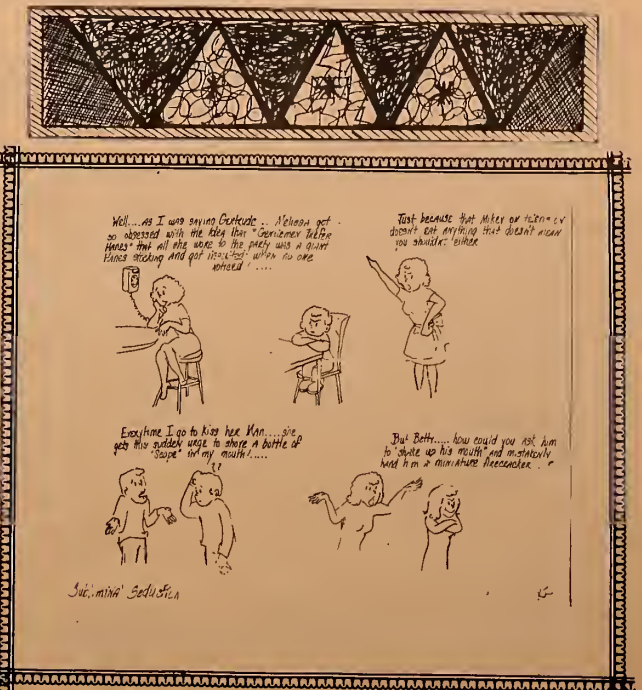 Well....As I was saying Gertrude .. Melissa got
so obsessed with the idea that "Gentlemen Prefer
Hanes" that all she wore to the party was a giant
Hanes stocking and got insulted when no one
noticed!....
Just because that Mikey on
doesn't eat anything that doesn't mean
you shouldn't either
Everytime I go to kiss her Man....she
gets this suddely urge to shore a bottle of
"Scope" in my mouth!.....
??
But Betty..... how could you ask him
to "shake up his mouth" and mistakenly
hand him a miniature firecracker
Seduction